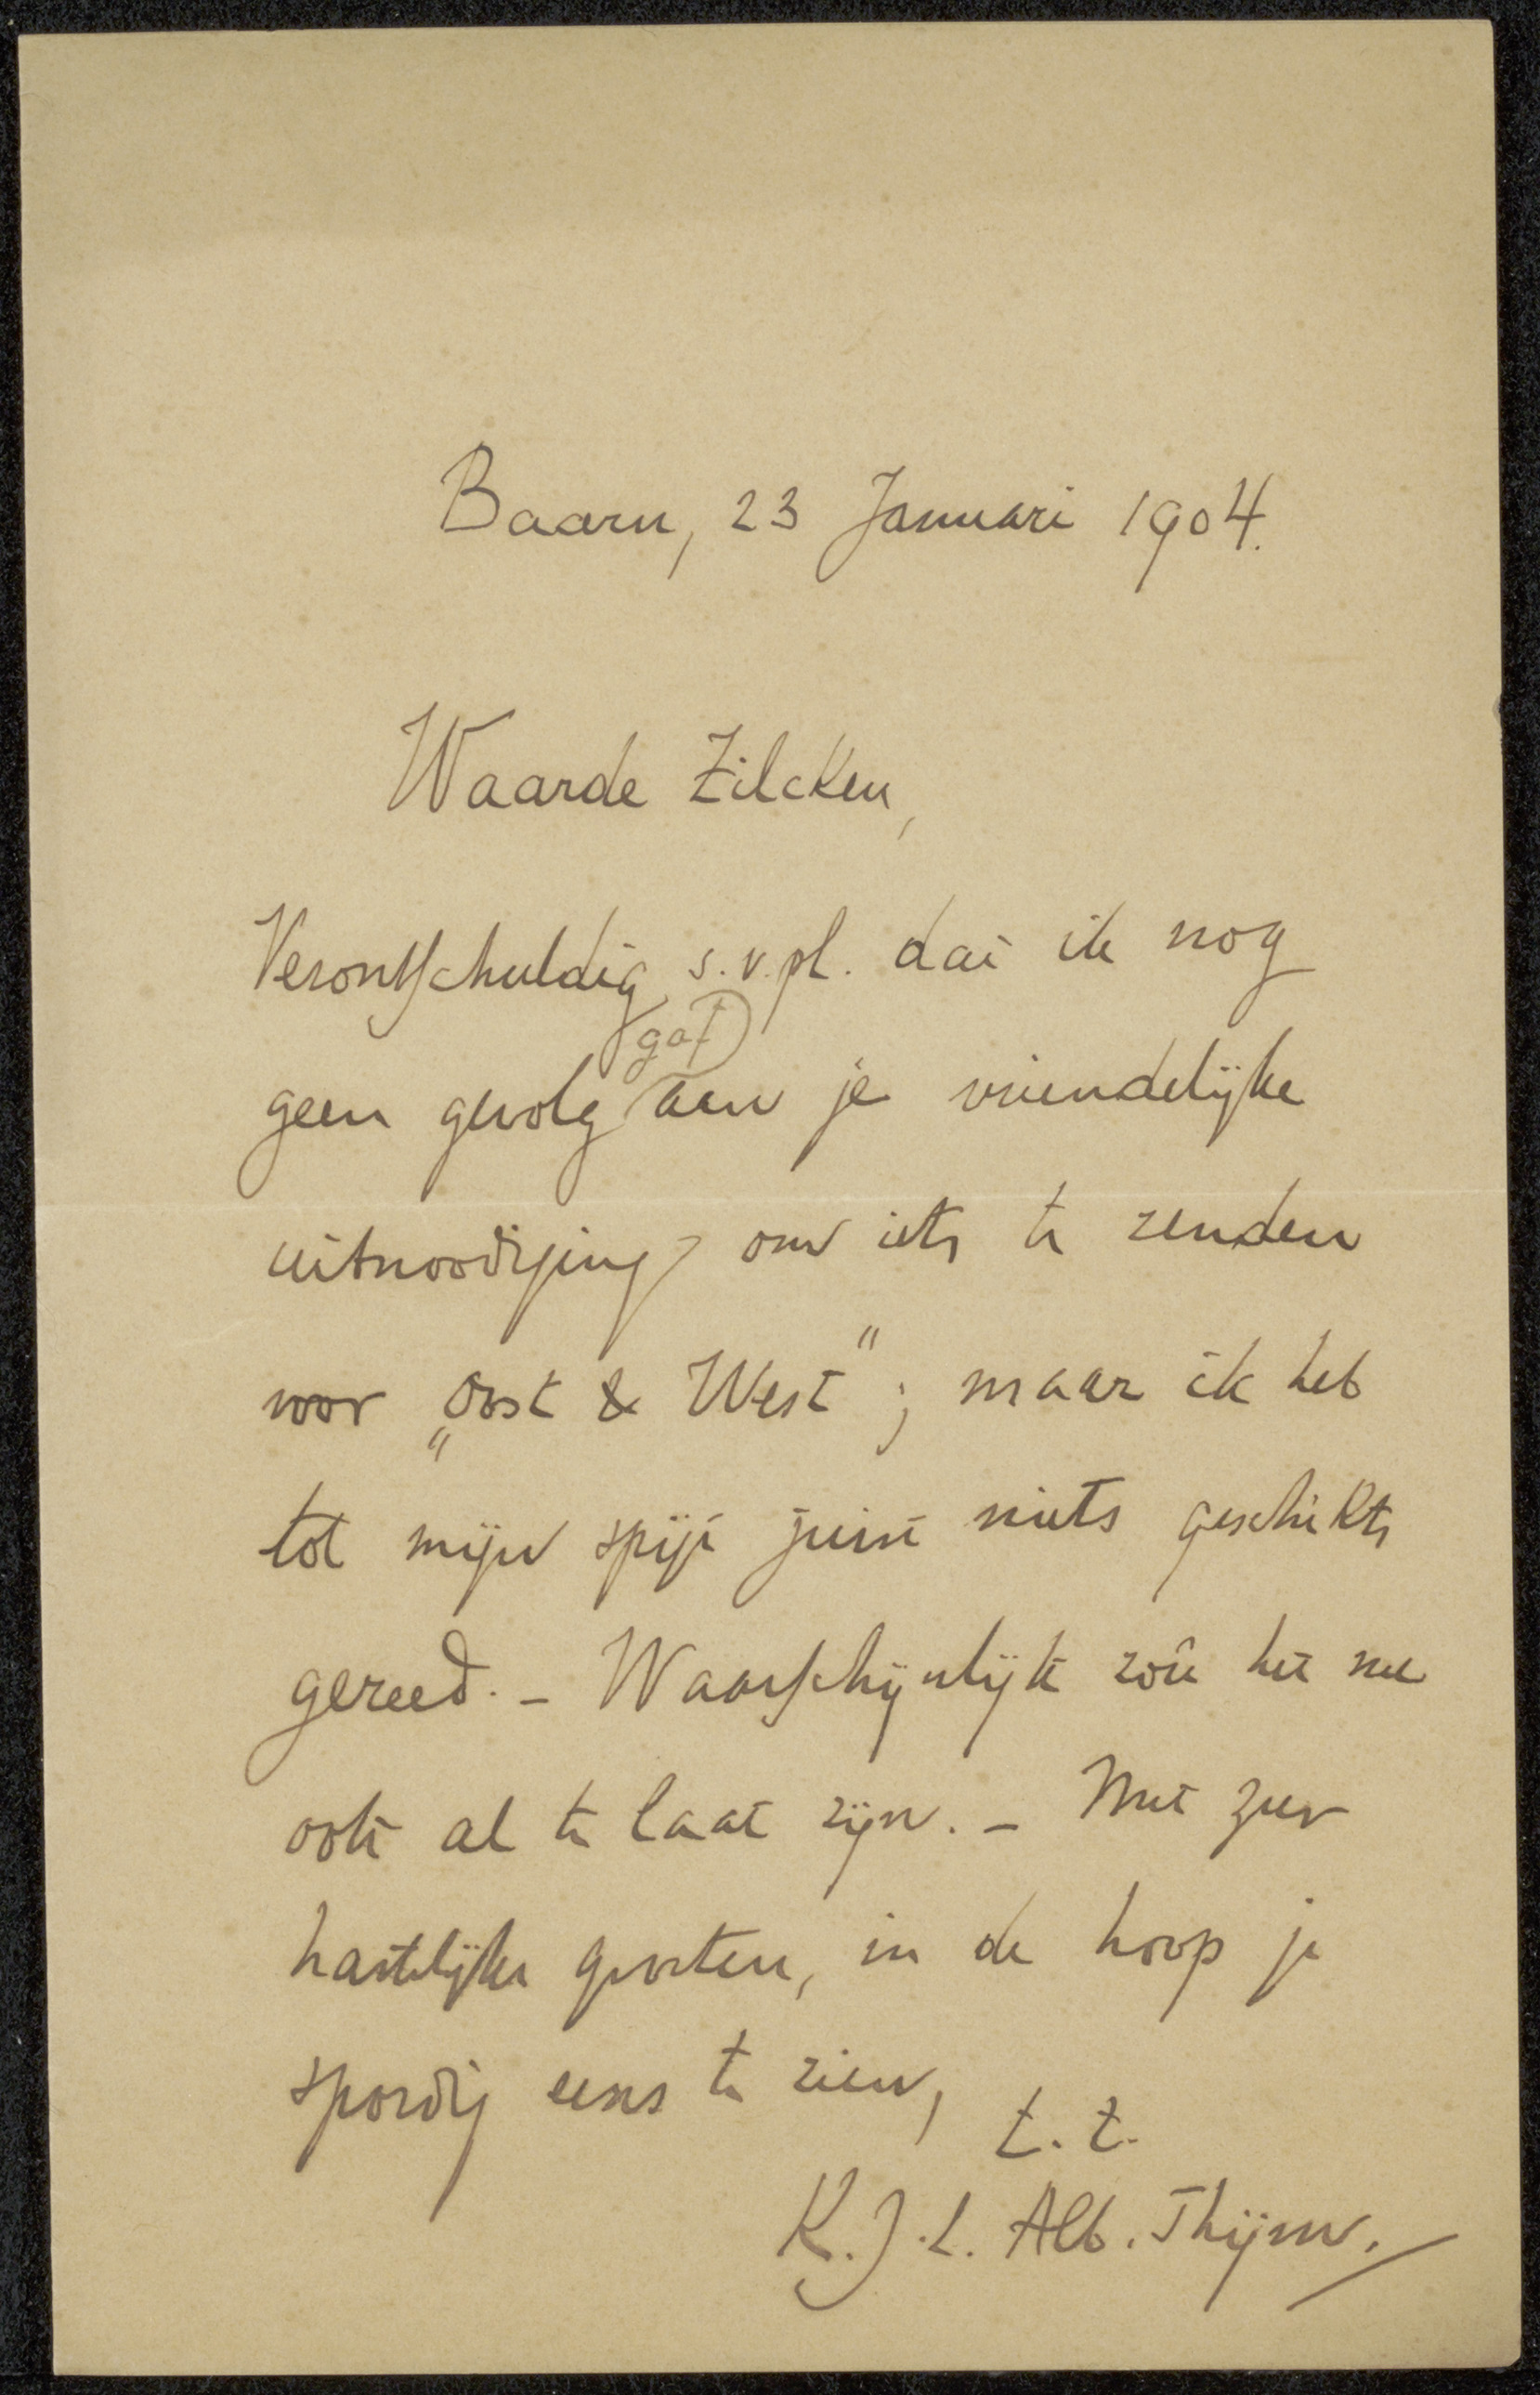 Baarn, 23 Januari 1904.
Waarde Zilcken,
Verontschuldig s.v.pl. dat ik nog
geen gevolg gaf aan je vriendelijke
uitnoodiging om iets te zenden
voor „Oost & West"; maar ik heb
tot mijn spijt juist niets geschikts
gereed. – Waarschijnlijk zoû het nu
ook al te laat zijn. – Met zeer
hartelijke groeten, in de hoop je
spoedig eens te zien,
t. t.
K. J. L. Alb. Thijm.